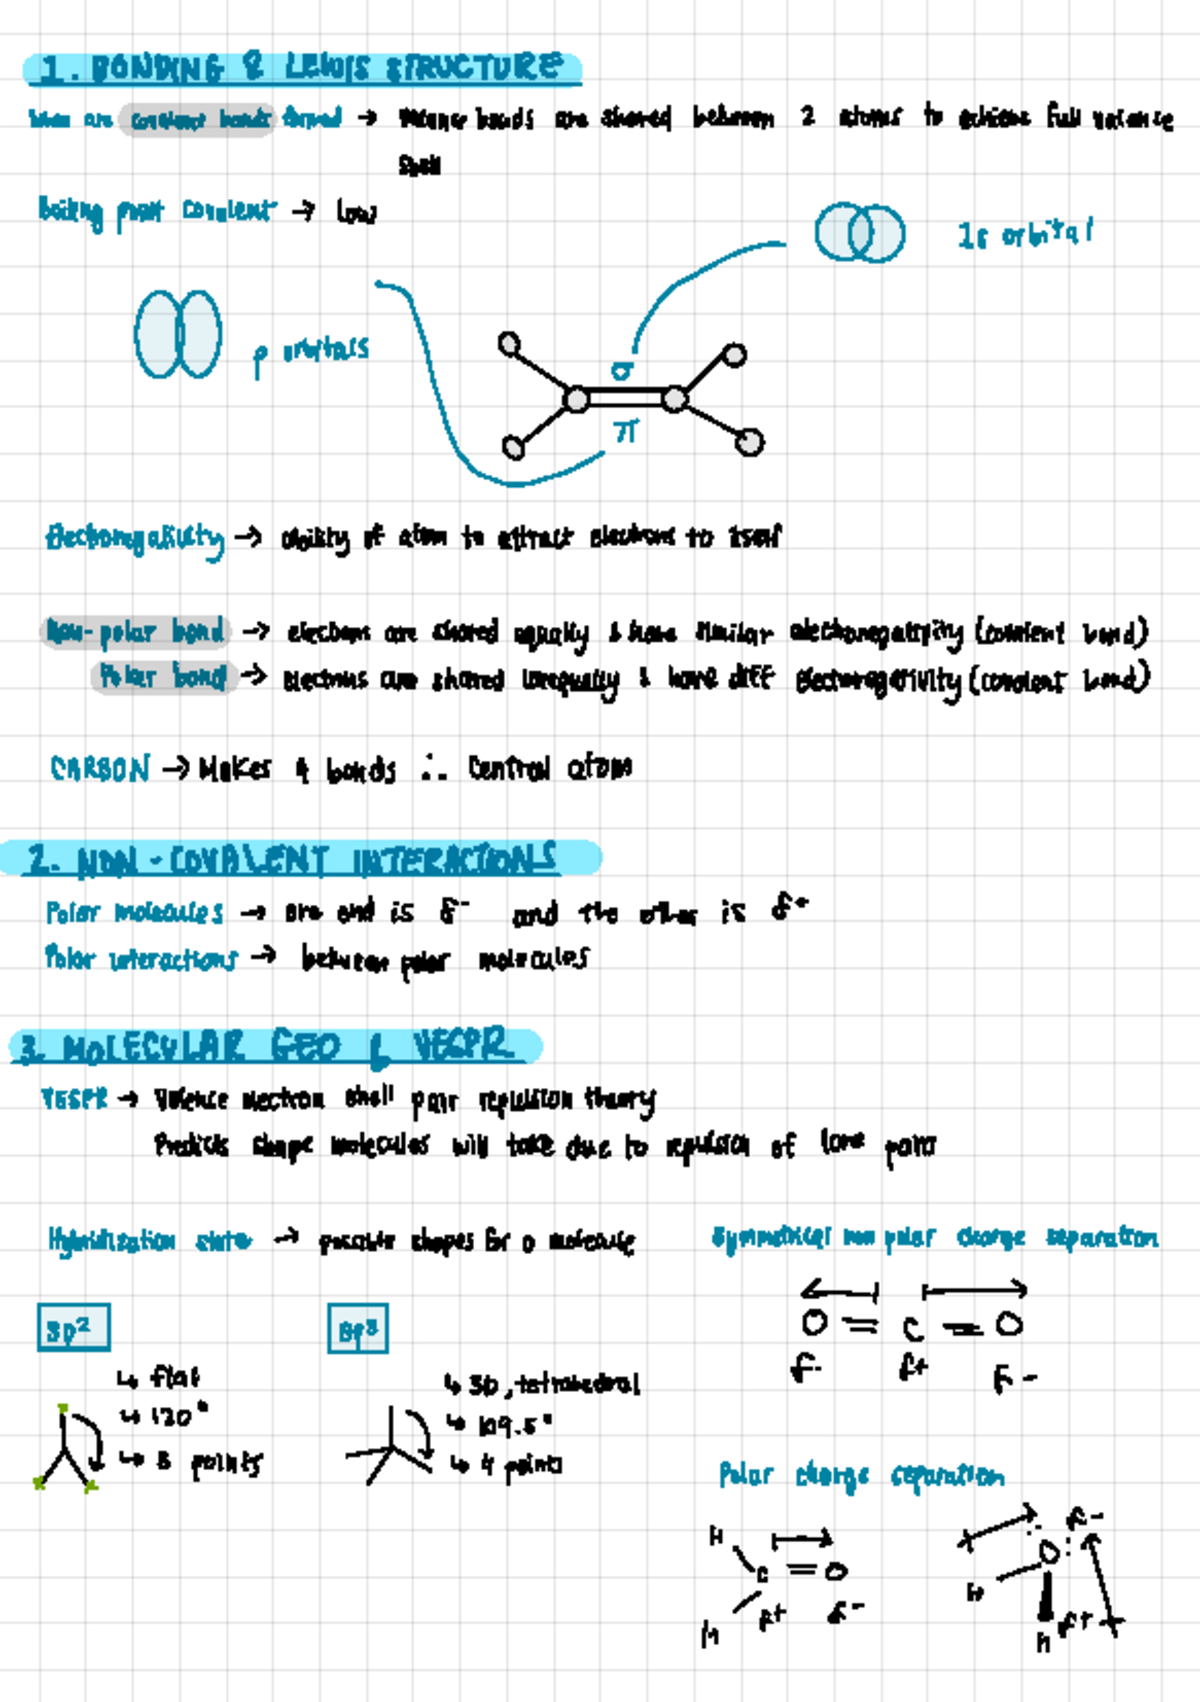 1. BONDING & LEWIS STRUCTURE
When are covalent bonds formed → bonds are shared between 2 atoms to achieve full valence
shell
Boiling point covalent → low
1s orbital
p orbitals
σ
π
Electronegativity → ability of atom to attract electrons to itself
Non-polar bond → electrons are shared equally & have similar electronegativity (covalent bond)
Polar bond → electrons are shared unequally & have diff electronegativity (covalent bond)
CARBON → Makes 4 bonds ∴ central atom
2. NON-COVALENT INTERACTIONS
Polar molecules → one end is δ⁻ and the other is δ⁺
Polar interactions → between polar molecules
3. MOLECULAR GEO & VESPR
VESPR → Valence electron shell pair repulsion theory
Predicts shape molecules will take due to repulsion of lone pairs
Hybridization state → possible shapes for a molecule
Symmetrical non polar charge separation
O = C = O
δ- δ+ δ-
sp²
↳ flat
↳ 120°
↳ 3 points
sp³
↳ 3D, tetrahedral
↳ 109.5°
↳ 4 points
Polar charge separation
H
C = O
H δ+ δ-
δ-
O
H
H δ+